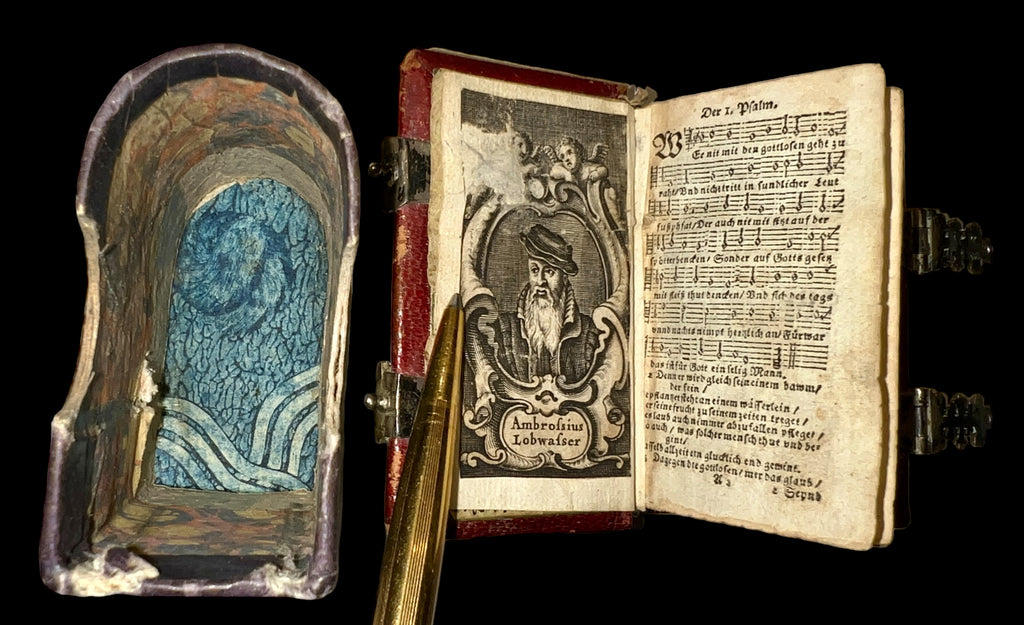 Ambrossius
Lobwasser
Der I. Psalm.
WEr nit mit den gottlosen geht zu
raht/ Vnd nicht tritt in sundlicher Leut
fußpfat/ Der auch nit mit sitzt auf der
spötterbencken/ Sonder auf Gotts gesetz
mit fleiß thut dencken/ Vnd sich des tags
vnnd nachts nimpt hertzlich an/ Fürwar
das ist für Gott ein selig Mann.
2 Denn er wird gleich sein einem bawm/
der fein/
gepflantzet steht an einem wässerlein/
er seine frucht zu seinem zeiten treget/
laub auch nimmer abzufallen pfleget/
auch/ was solcher mensch thut vnd be-
gint/
allzeit ein glucklich end gewint.
Dagegen die gottlosen/ mer das glaub/
A 2
Seynd